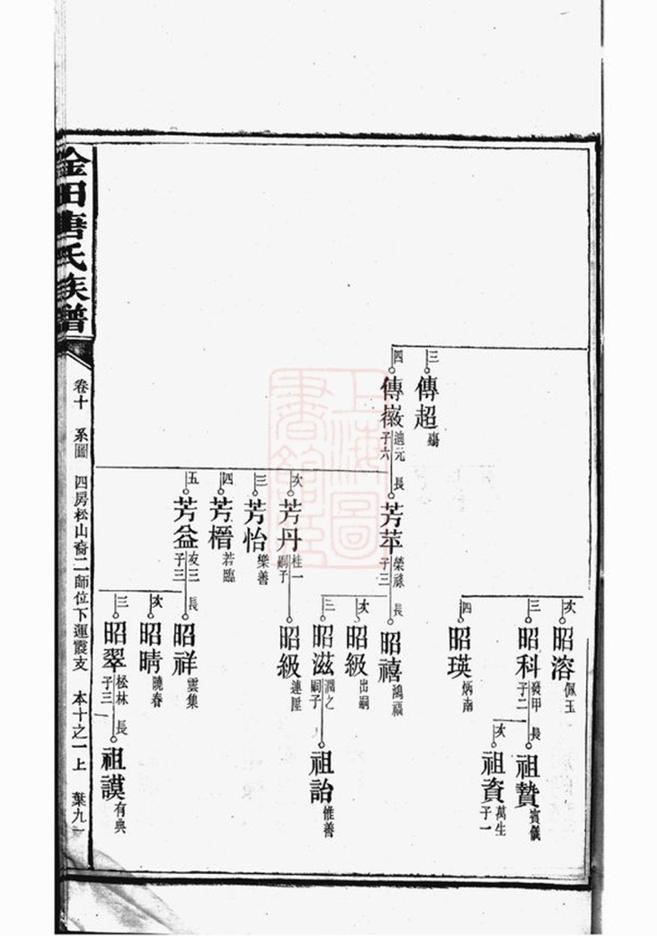 金田唐氏族譜
卷十 系圖 四房松山裔二師位下運震支 本十之一上 葉九一
三 傳超 殤
四 傳 迪元 子六
長 芳苹 榮祿 子三
次 芳丹 桂一 嗣子
三 芳怡 樂善
四 芳榗 若臨
五 芳益 友三 子三
次 昭溶 佩玉
三 昭科 發甲 子二
四 昭瑛 炳南
長 昭禧 鴻福
次 昭級 出嗣
三 昭滋 潤之 嗣子
昭級 連陞
長 昭祥 雲集
次 昭晴 曉春
三 昭翠 松林 子三
長 祖贊 賓儀
次 祖資 萬生 子一
祖詒 惟善
長 祖謨 有典
上海圖書館藏